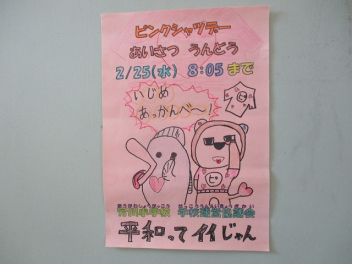 ピンクシャツデー
あいさつ うんどう
2/25(水) 8:05 まで
いじめ
あっかんべ〜!
小学校 学校運営協議会
平和ってイイじゃん